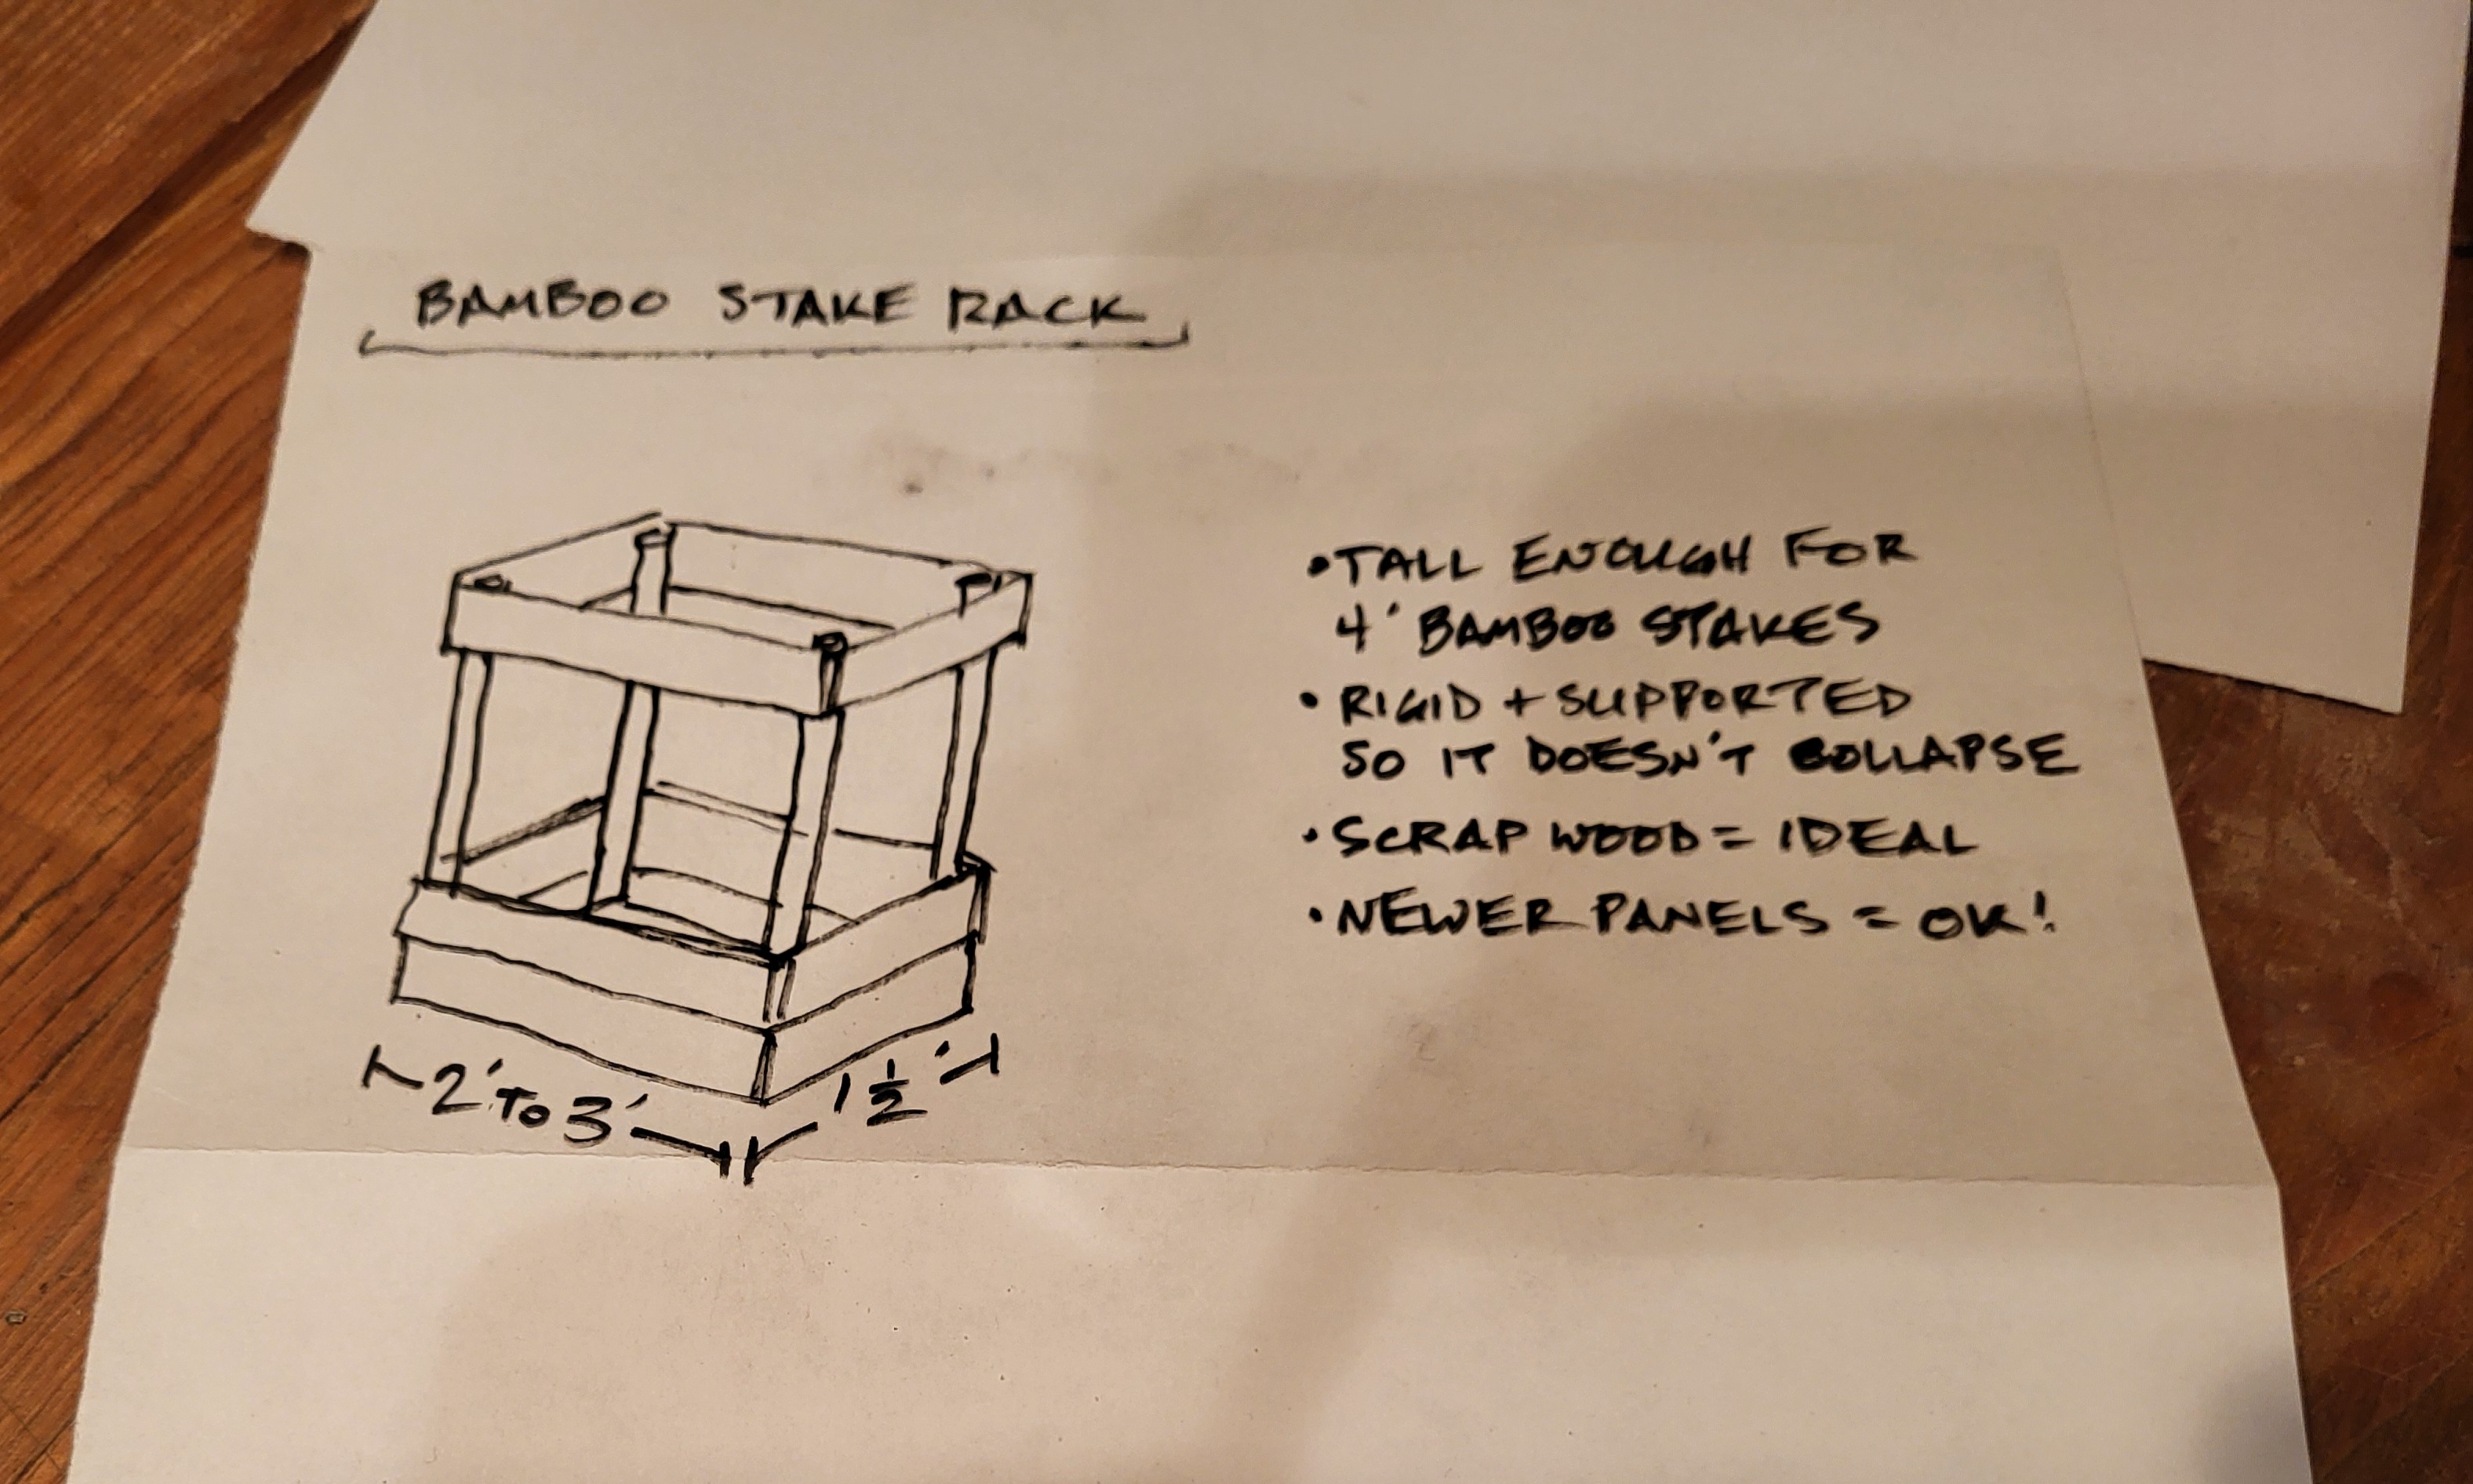 BAMBOO STAKE RACK
• TALL ENOUGH FOR
4' BAMBOO STAKES
• RIGID + SUPPORTED
SO IT DOESN'T COLLAPSE
• SCRAP WOOD = IDEAL
• NEWER PANELS = OK!
2' TO 3'
1 1/2'